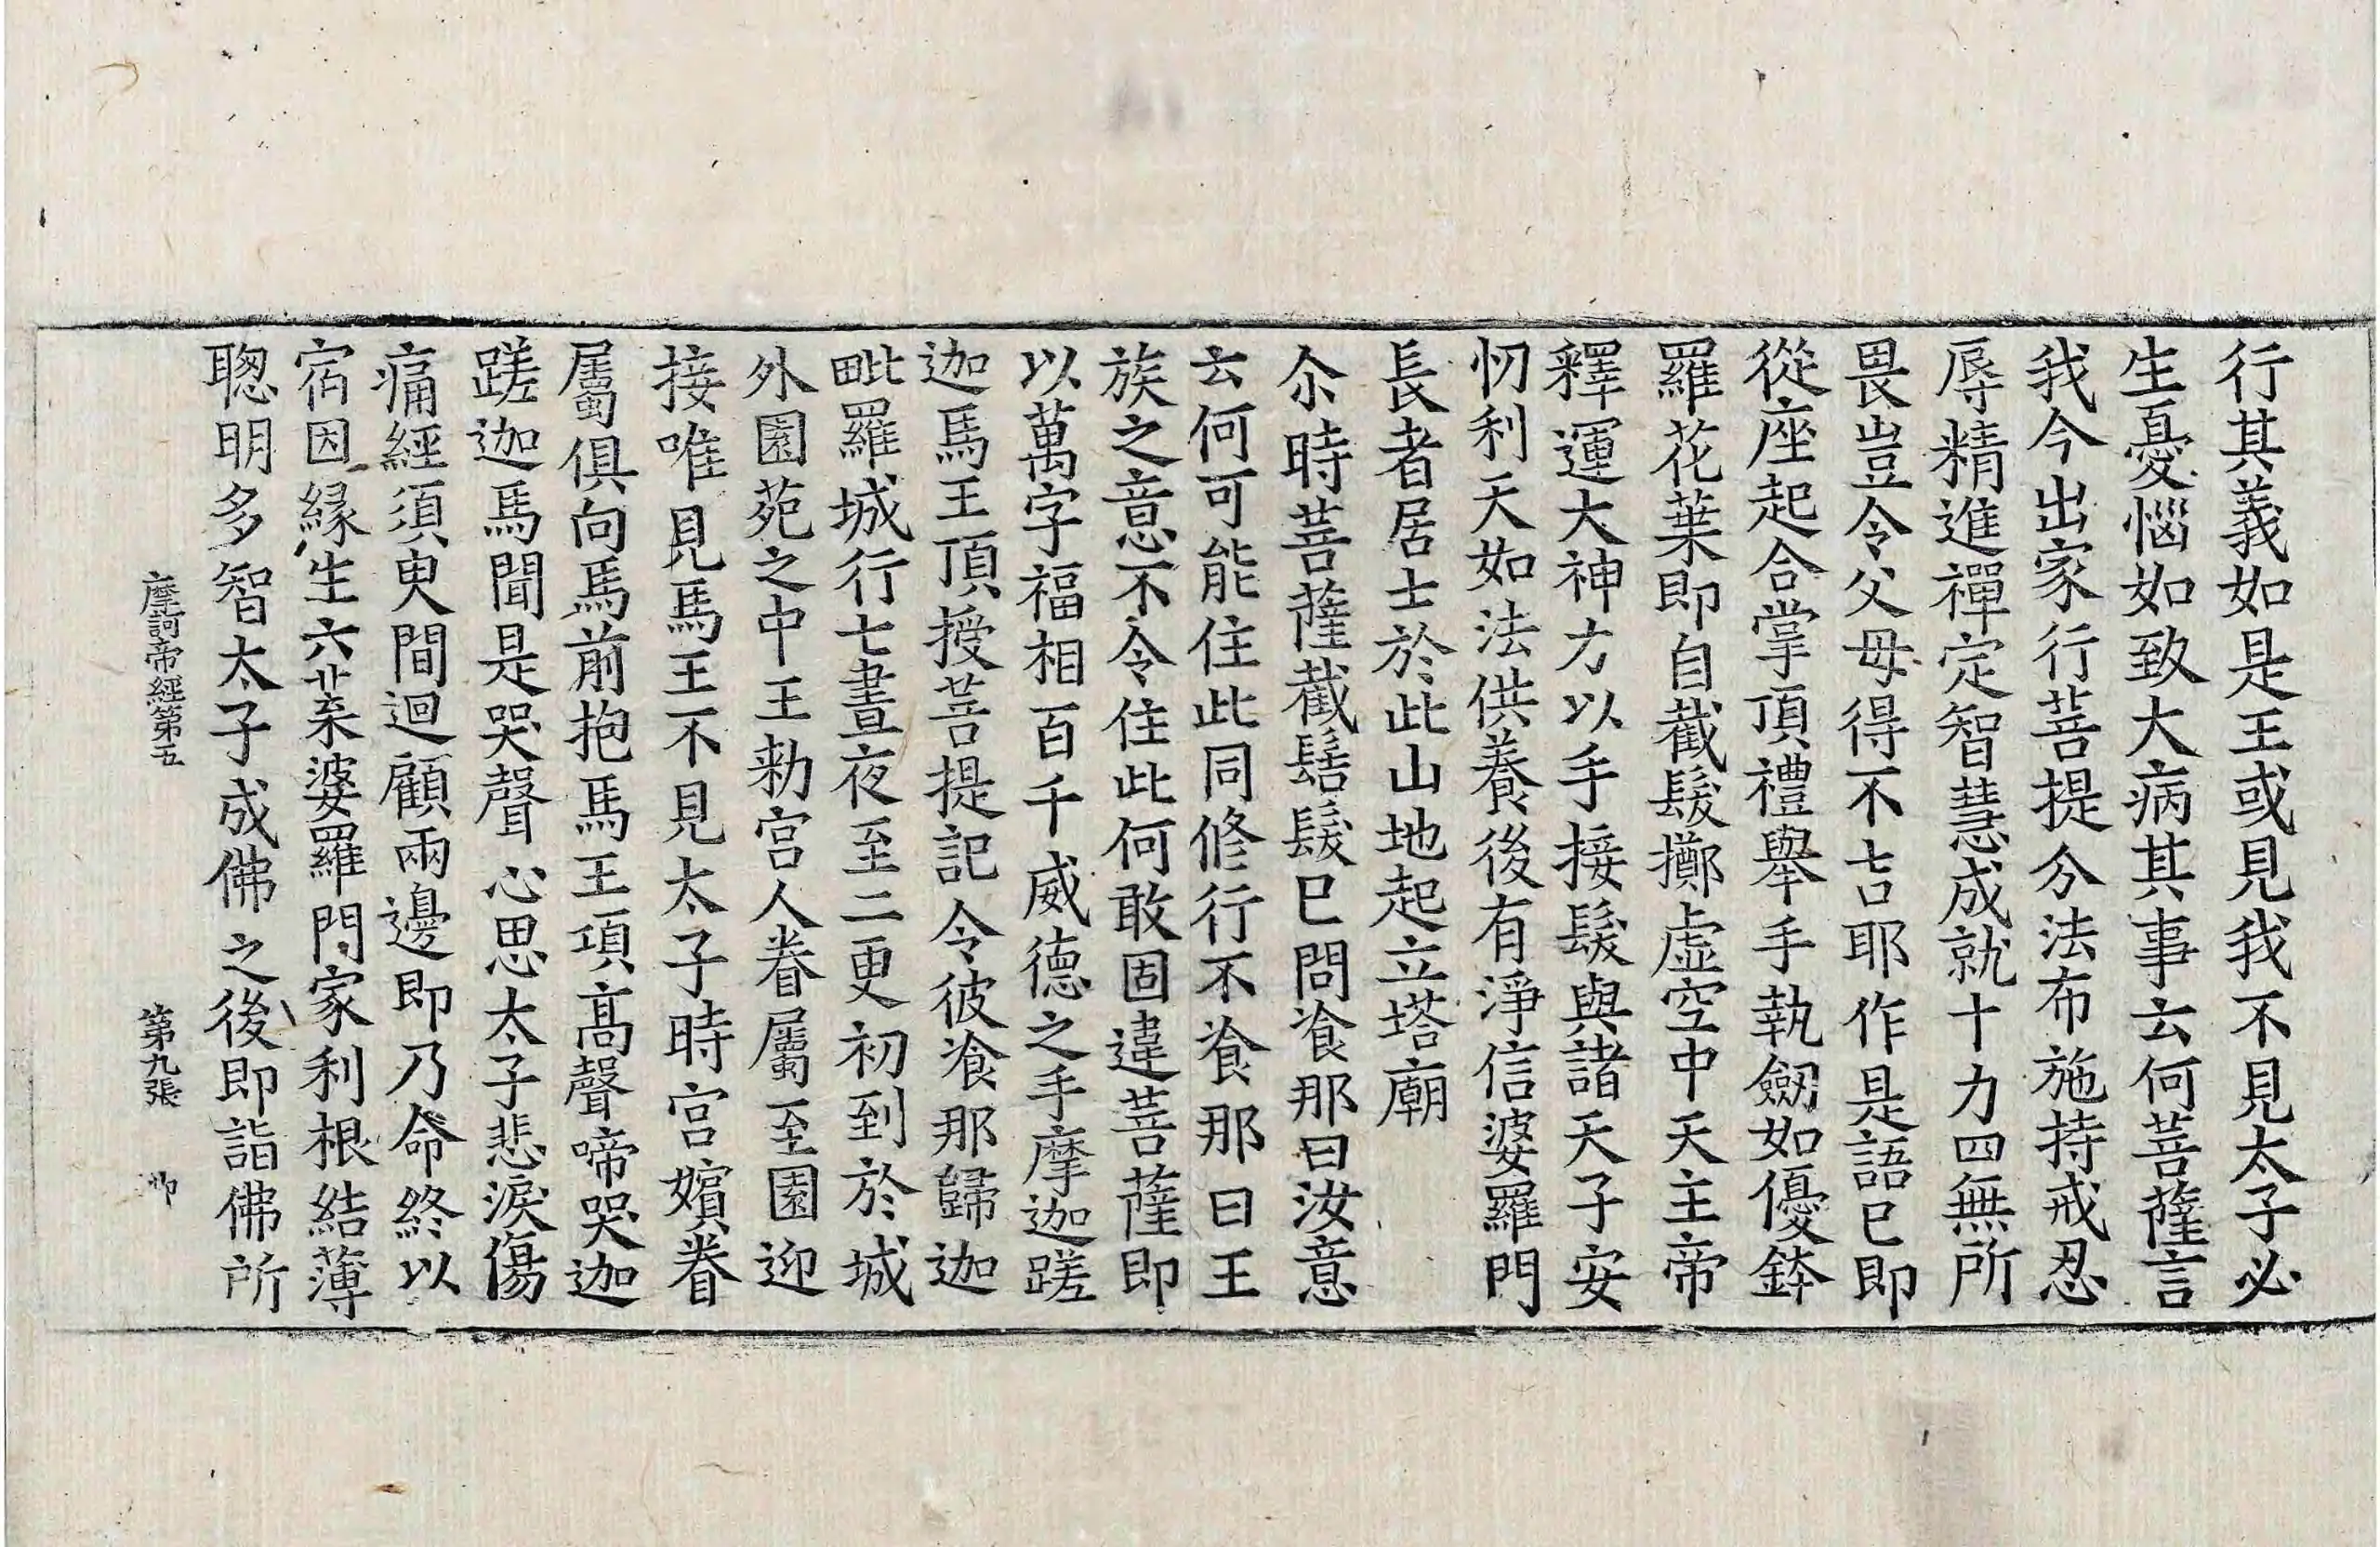 行其義如是王或見我不見太子必
生憂惱如致大病其事云何菩薩言
我今出家行菩提分法布施持戒忍
辱精進禪定智慧成就十力四無所
畏豈令父母得不吉耶作是語已即
從座起合掌頂禮舉手執劒如優鉢
羅花葉即自截髮擲虛空中天主帝
釋運大神力以手接髮與諸天子安
忉利天如法供養後有淨信婆羅門
長者居士於此山地起立塔廟
尒時菩薩截髻髮已問飡那曰汝意
云何可能住此同修行不飡那曰王
族之意不令住此何敢固違菩薩即
以萬字福相百千威德之手摩迦蹉
迦馬王頂授菩提記令彼飡那歸迦
毗羅城行七晝夜至二更初到於城
外園苑之中王勑宮人眷屬至園迎
接唯見馬王不見太子時宮嬪眷
屬俱向馬前抱馬王項高聲啼哭迦
蹉迦馬聞是哭聲心思太子悲淚傷
痛經須臾間迴顧兩邊即乃命終以
宿因緣生六𦬊婆羅門家利根結薄
聰明多智太子成佛之後即詣佛所
摩訶帝經第五 第九張